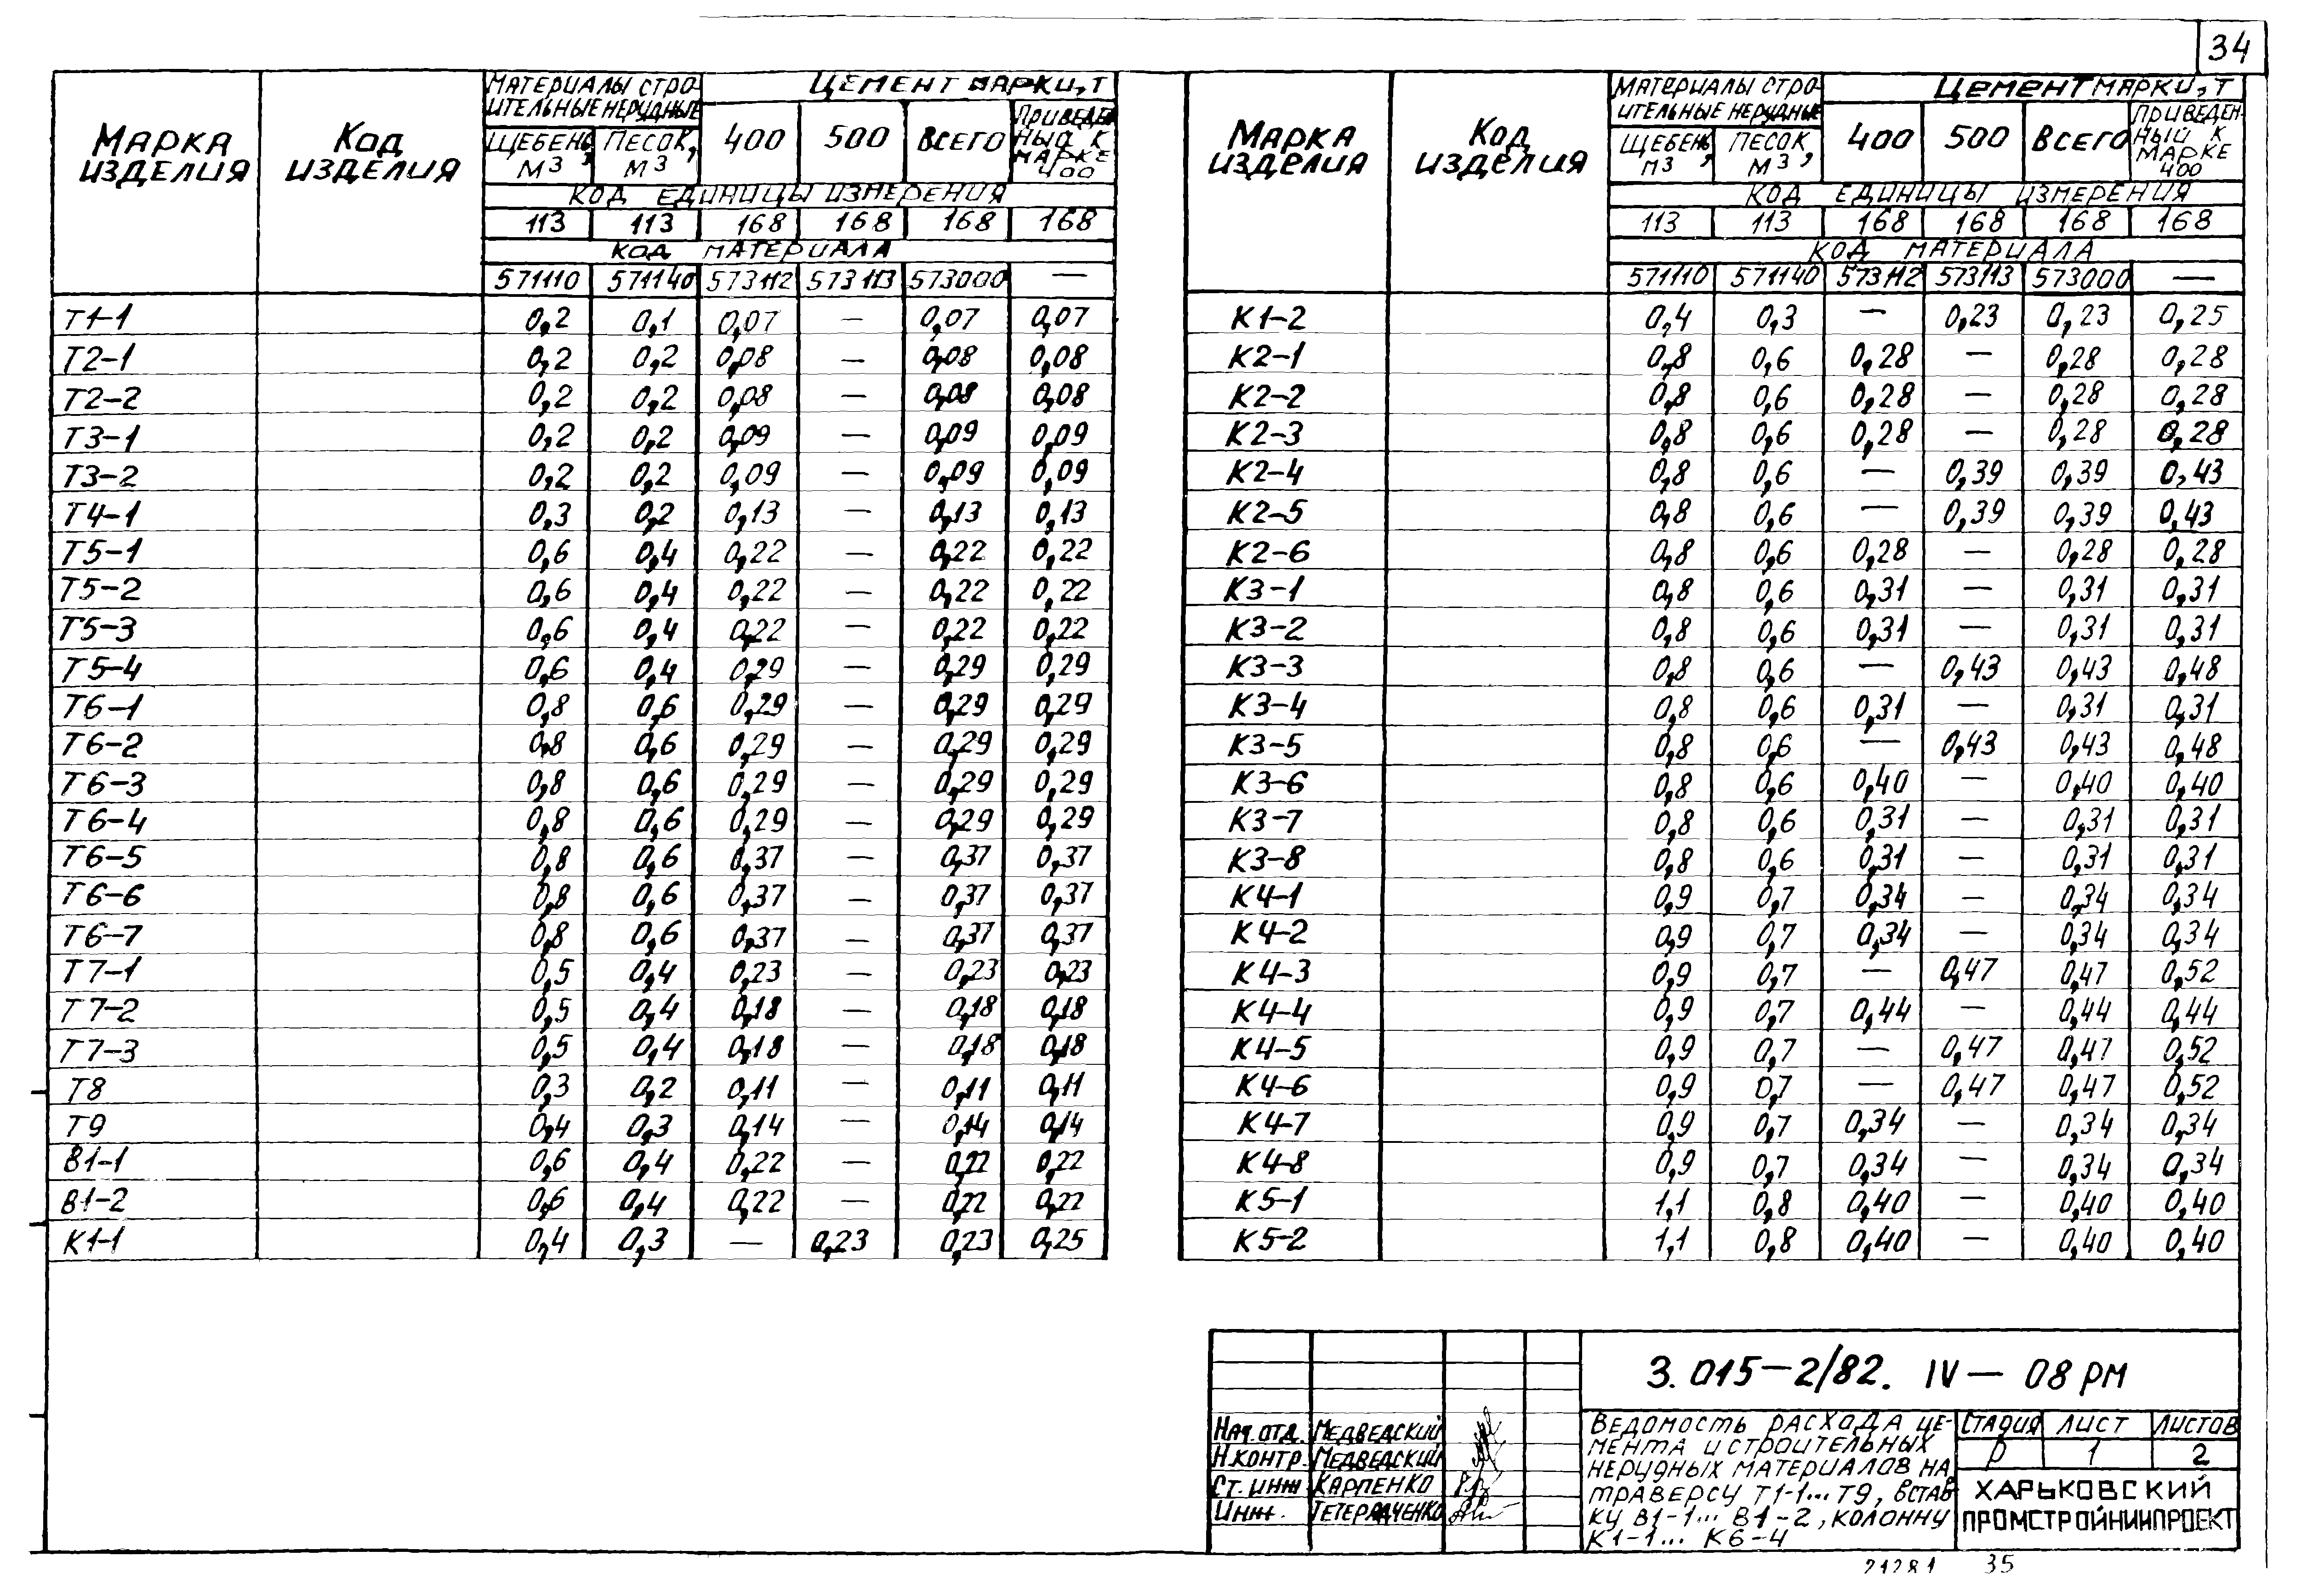 34
МАРКА ИЗДЕЛИЯ | КОД ИЗДЕЛИЯ | МАТЕРИАЛЫ СТРО-ИТЕЛЬНЫЕ НЕРУДНЫЕ | ЦЕМЕНТ МАРКИ, Т
ЩЕБЕНЬ, М3 | ПЕСОК, М3 | 400 | 500 | ВСЕГО | ПРИВЕДЕННЫЙ К МАРКЕ 400
КОД ЕДИНИЦЫ ИЗМЕРЕНИЯ
113 113 168 168 168 168
КОД МАТЕРИАЛА
571110 571140 573112 573113 573000 —
Т1-1 0,2 0,1 0,07 — 0,07 0,07
Т2-1 0,2 0,2 0,08 — 0,08 0,08
Т2-2 0,2 0,2 0,08 — 0,08 0,08
Т3-1 0,2 0,2 0,09 — 0,09 0,09
Т3-2 0,2 0,2 0,09 — 0,09 0,09
Т4-1 0,3 0,2 0,13 — 0,13 0,13
Т5-1 0,6 0,4 0,22 — 0,22 0,22
Т5-2 0,6 0,4 0,22 — 0,22 0,22
Т5-3 0,6 0,4 0,22 — 0,22 0,22
Т5-4 0,6 0,4 0,29 — 0,29 0,29
Т6-1 0,8 0,6 0,29 — 0,29 0,29
Т6-2 0,8 0,6 0,29 — 0,29 0,29
Т6-3 0,8 0,6 0,29 — 0,29 0,29
Т6-4 0,8 0,6 0,29 — 0,29 0,29
Т6-5 0,8 0,6 0,37 — 0,37 0,37
Т6-6 0,8 0,6 0,37 — 0,37 0,37
Т6-7 0,8 0,6 0,37 — 0,37 0,37
Т7-1 0,5 0,4 0,23 — 0,23 0,23
Т7-2 0,5 0,4 0,18 — 0,18 0,18
Т7-3 0,5 0,4 0,18 — 0,18 0,18
Т8 0,3 0,2 0,11 — 0,11 0,11
Т9 0,4 0,3 0,14 — 0,14 0,14
В1-1 0,6 0,4 0,22 — 0,22 0,22
В1-2 0,6 0,4 0,22 — 0,22 0,22
К1-1 0,4 0,3 — 0,23 0,23 0,25
МАРКА ИЗДЕЛИЯ | КОД ИЗДЕЛИЯ | МАТЕРИАЛЫ СТРО-ИТЕЛЬНЫЕ НЕРУДНЫЕ | ЦЕМЕНТ МАРКИ, Т
ЩЕБЕНЬ, М3 | ПЕСОК, М3 | 400 | 500 | ВСЕГО | ПРИВЕДЕН-НЫЙ К МАРКЕ 400
КОД ЕДИНИЦЫ ИЗМЕРЕНИЯ
113 113 168 168 168 168
КОД МАТЕРИАЛА
571110 571140 573112 573113 573000 —
К1-2 0,4 0,3 — 0,23 0,23 0,25
К2-1 0,8 0,6 0,28 — 0,28 0,28
К2-2 0,8 0,6 0,28 — 0,28 0,28
К2-3 0,8 0,6 0,28 — 0,28 0,28
К2-4 0,8 0,6 — 0,39 0,39 0,43
К2-5 0,8 0,6 — 0,39 0,39 0,43
К2-6 0,8 0,6 0,28 — 0,28 0,28
К3-1 0,8 0,6 0,31 — 0,31 0,31
К3-2 0,8 0,6 0,31 — 0,31 0,31
К3-3 0,8 0,6 — 0,43 0,43 0,48
К3-4 0,8 0,6 0,31 — 0,31 0,31
К3-5 0,8 0,6 — 0,43 0,43 0,48
К3-6 0,8 0,6 0,40 — 0,40 0,40
К3-7 0,8 0,6 0,31 — 0,31 0,31
К3-8 0,8 0,6 0,31 — 0,31 0,31
К4-1 0,9 0,7 0,34 — 0,34 0,34
К4-2 0,9 0,7 0,34 — 0,34 0,34
К4-3 0,9 0,7 — 0,47 0,47 0,52
К4-4 0,9 0,7 0,44 — 0,44 0,44
К4-5 0,9 0,7 — 0,47 0,47 0,52
К4-6 0,9 0,7 — 0,47 0,47 0,52
К4-7 0,9 0,7 0,34 — 0,34 0,34
К4-8 0,9 0,7 0,34 — 0,34 0,34
К5-1 1,1 0,8 0,40 — 0,40 0,40
К5-2 1,1 0,8 0,40 — 0,40 0,40
3.015-2/82. IV — 08 РМ
НАЧ.ОТД. МЕДВЕДСКИЙ
Н.КОНТР. МЕДВЕДСКИЙ
СТ. ИНЖ КАРПЕНКО
ИНЖ.
ВЕДОМОСТЬ РАСХОДА ЦЕ-
МЕНТА И СТРОИТЕЛЬНЫХ
НЕРУДНЫХ МАТЕРИАЛОВ НА
ТРАВЕРСУ Т1-1... Т9, ВСТАВ
КУ В1-1... В1-2, КОЛОННУ
К1-1... К6-4
СТАДИЯ ЛИСТ ЛИСТОВ
Р 1 2
ХАРЬКОВСКИЙ
ПРОМСТРОЙНИИПРОЕКТ
21281 35